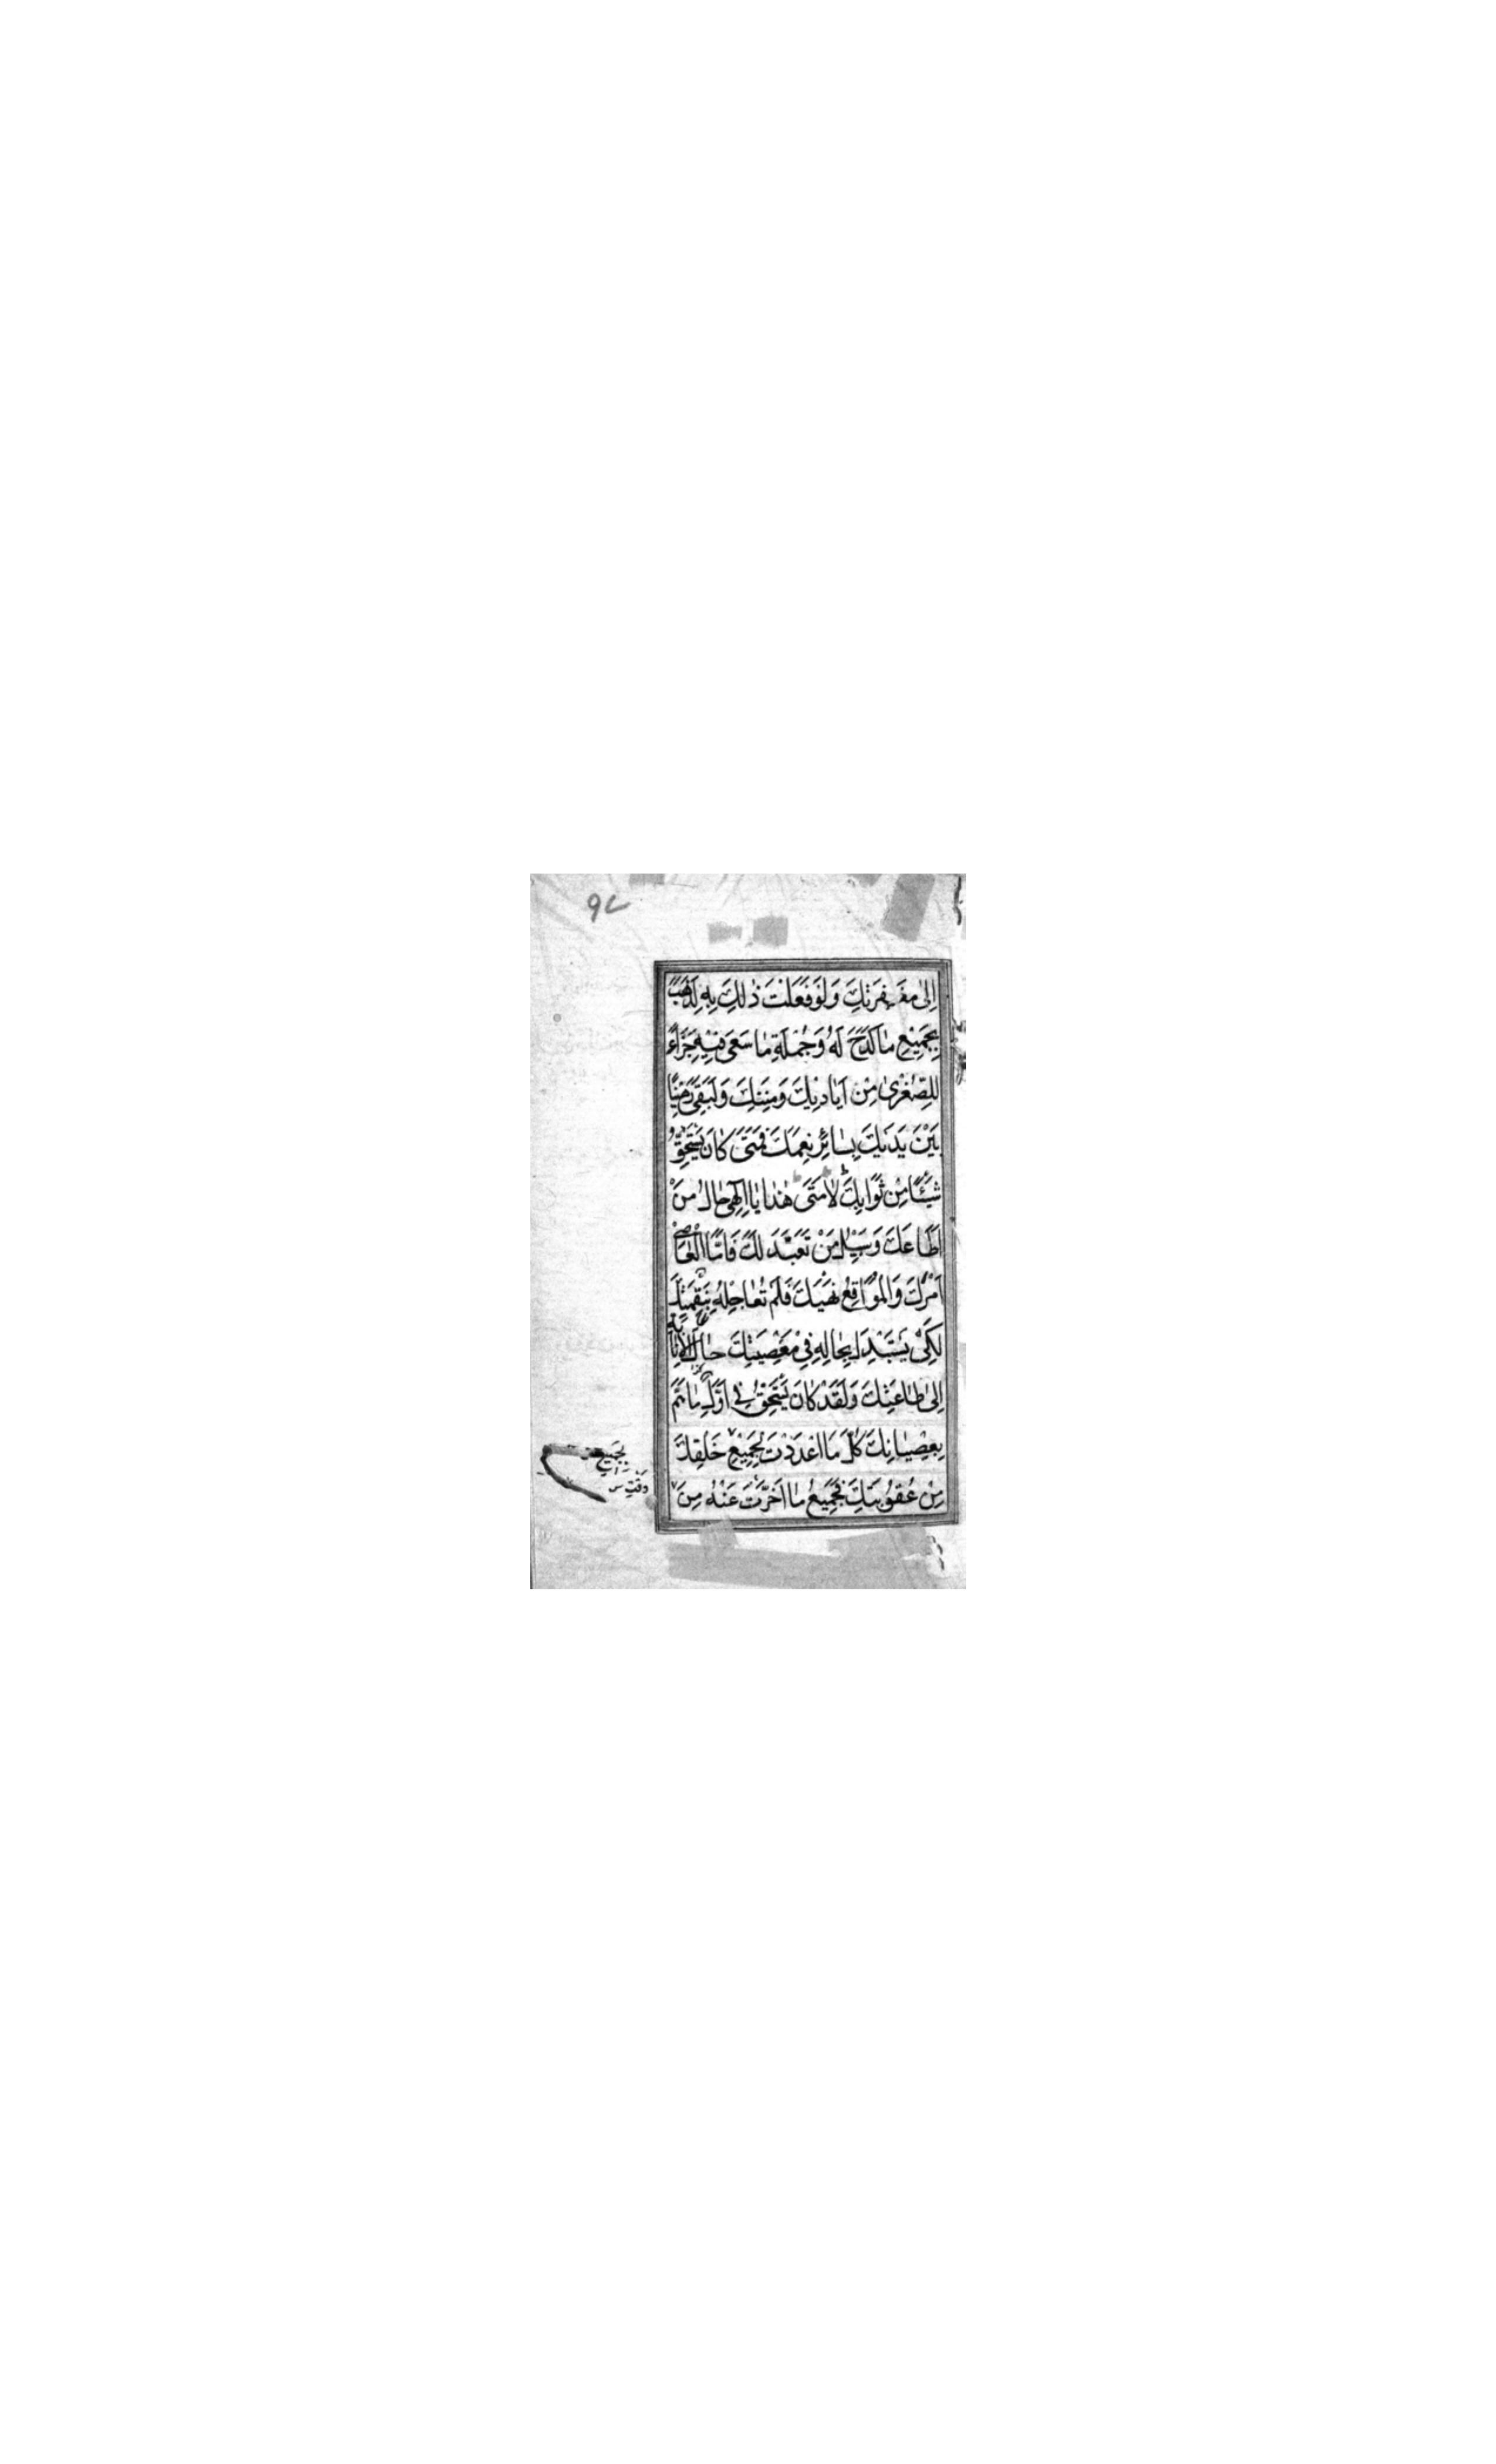 ۹۷
اِلیٰ مَغْفِرَتِكَ وَلَوْ فَعَلْتَ ذٰلِكَ بِهِ لَذَهَبَ
بِجَمِيْعِ مٰا كَدَحَ لَهُ وَجُمْلَةِ مٰا سَعىٰ فِيْهِ جَزٰاءً
لِلصُّغْرىٰ مِنْ اَيٰادِيْكَ وَمِنَنِكَ وَلَبَقِىَ رَهِيْنًا
بَيْنَ يَدَيْكَ بِسٰائِرِ نِعَمِكَ فَمَتىٰ كٰانَ يَسْتَحِقُّ
شَيْئًا مِنْ ثَوٰابِكَ لاٰ مَتىٰ هٰذٰا يٰا اِلٰهِى حٰالُ مَنْ
اَطٰاعَكَ وَسَبِيْلُ مَنْ تَعَبَّدَ لَكَ فَاَمَّا الْعٰاصِى
اَمْرَكَ وَالْمُوٰاقِعُ نَهْيَكَ فَلَمْ تُعٰاجِلْهُ بِنَقِمَتِكَ
لِكَىْ يَسْتَبْدِلَ بِحٰالِهِ فِى مَعْصِيَتِكَ حٰالَ الْاِنٰابَةِ
اِلىٰ طٰاعَتِكَ وَلَقَدْ كٰانَ يَسْتَحِقُّ فِى اَوَّلِ مٰا هَمَّ
بِعِصْيٰانِكَ كُلَّ مٰا اَعْدَدْتَ لِجَمِيْعِ خَلْقِكَ
مِنْ عُقُوْبَتِكَ فَجَمِيْعُ مٰا اَخَّرْتَ عَنْهُ مِنَ